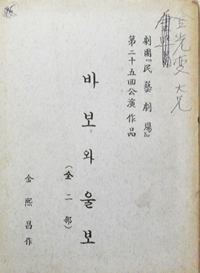 大兄
劇團『民藝劇場』
第二十五回公演作品
바보와 울보
(全二部)
金熙昌作